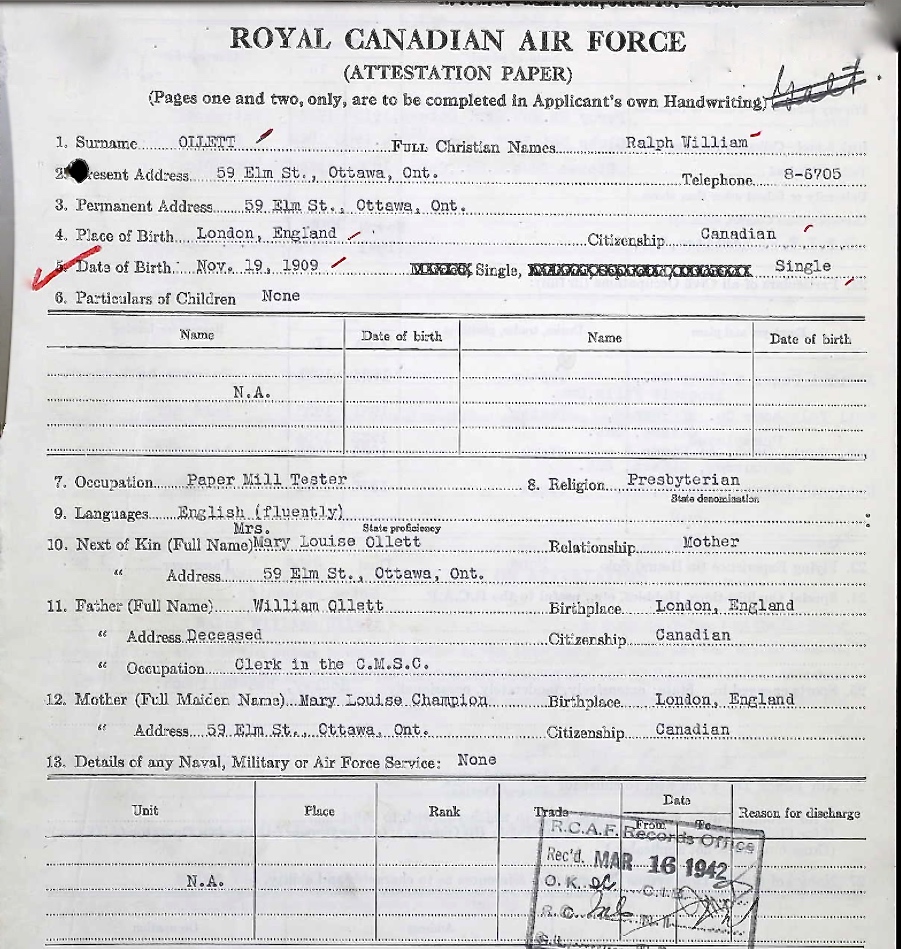 ROYAL CANADIAN AIR FORCE
(ATTESTATION PAPER)
(Pages one and two, only, are to be completed in Applicant's own Handwriting)
1. Surname OLLETT FULL Christian Names Ralph William
2. Present Address 59 Elm St., Ottawa, Ont. Telephone 8-6705
3. Permanent Address 59 Elm St., Ottawa, Ont.
4. Place of Birth London, England Citizenship Canadian
5. Date of Birth Nov. 19, 1909 Single, Single
6. Particulars of Children None
Name Date of birth Name Date of birth
N.A.
7. Occupation Paper Mill Tester 8. Religion Presbyterian
State denomination
9. Languages English (fluently)
Mrs. State proficiency
10. Next of Kin (Full Name) Mary Louise Ollett Relationship Mother
" Address 59 Elm St., Ottawa, Ont.
11. Father (Full Name) William Ollett Birthplace London, England
" Address Deceased Citizenship Canadian
" Occupation Clerk in the C.M.S.C.
12. Mother (Full Maiden Name) Mary Louise Champion Birthplace London, England
" Address 59 Elm St., Ottawa, Ont. Citizenship Canadian
13. Details of any Naval, Military or Air Force Service: None
Unit Place Rank Trade Date Reason for discharge
From To
R.C.A.F. Records Office
Rec'd. MAR 16 1942
N.A.
O.K. C.I.B.
R.C.